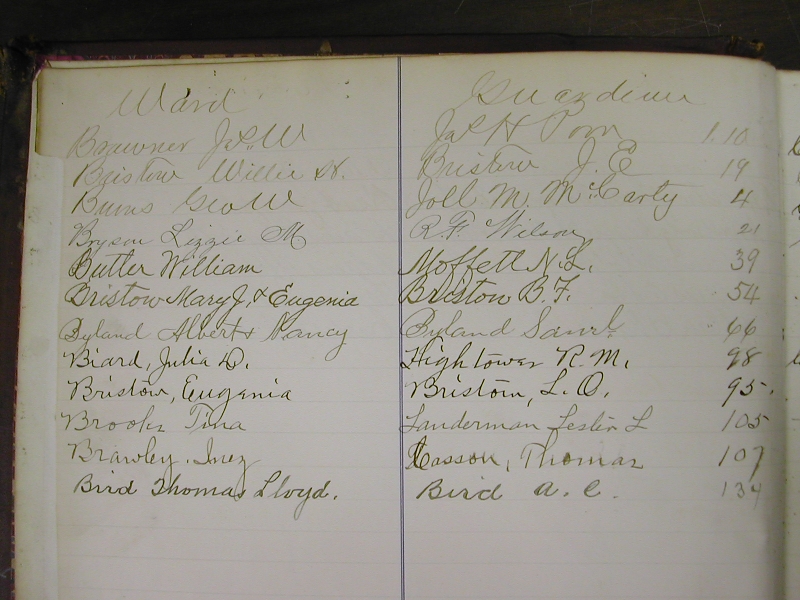 Ward Guardian
Brawner Jas. W Jas H Pom 1.10
Bristow Willie H. Bristow J. E 19
Burns Geo W Joel M. McCarty 4
Bryson Lizzie M R. F. Wilson 21
Butler William Moffett N. L. 39
Bristow Mary J, & Eugenia Bristow B. F. 54
Byland Albert & Nancy Byland Saml 66
Biard, Julia D. Hightower R. M. 98
Bristow, Eugenia Bristow, L. O. 95.
Brooks Tina Landerman Lester L 105
Brawley. Inez Casson, Thomas 107
Bird Thomas Lloyd. Bird A. C. 134